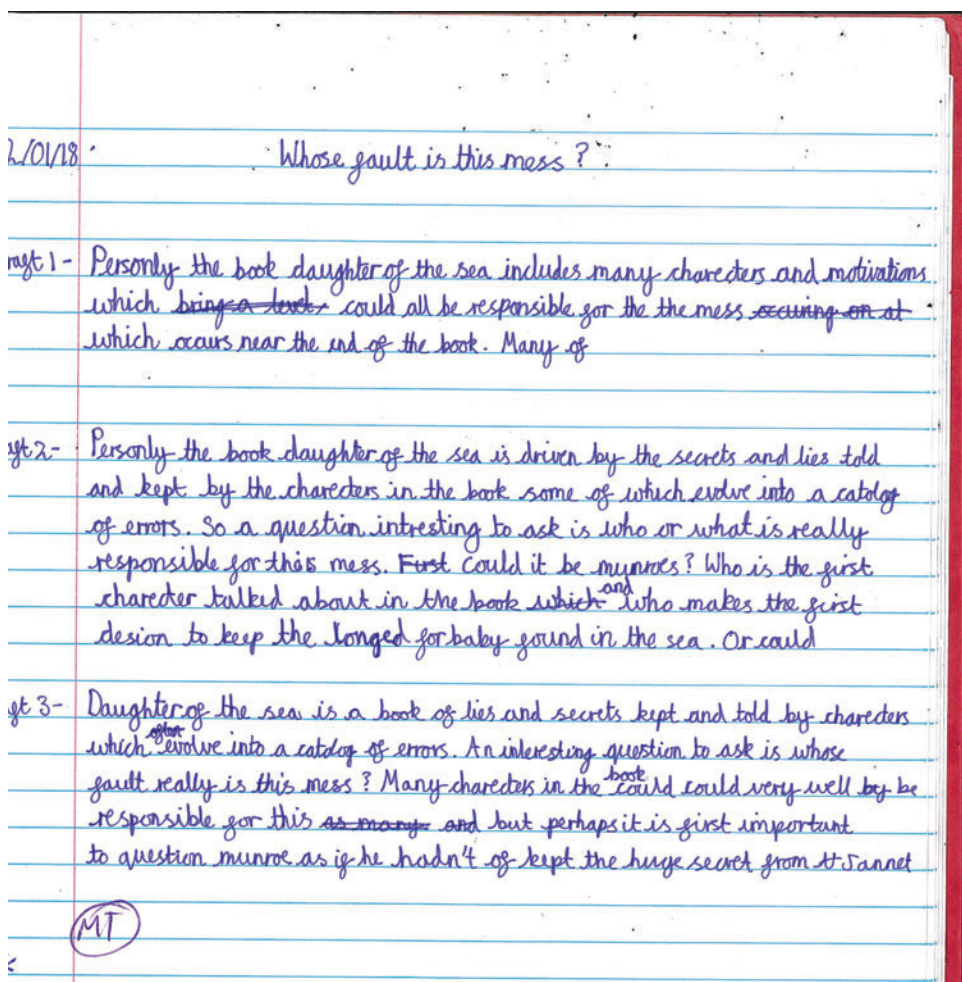 2/01/18. Whose fault is this mess?
raft 1- Personly the book daughter of the sea includes many charecters and motivations
which bring a level could all be responsible for the the mess occuring on at
which occurs near the end of the book. Many of
aft 2- Personly the book daughter of the sea is driven by the secrets and lies told
and kept by the charecters in the book some of which evolve into a catolog
of errors. So a question intresting to ask is who or what is really
responsible for this mess. First could it be munroes? Who is the first
charecter talked about in the book which and who makes the first
desion to keep the longed for baby found in the sea. Or could
ft 3- Daughter of the sea is a book of lies and secrets kept and told by charecters
which often evolve into a catolog of errors. An interesting question to ask is whose
fault really is this mess? Many charecters in the book could could very well by be
responsible for this as many and but perhaps it is first important
to question munroe as if he hadn't of kept the huge secret from Jannet
MT